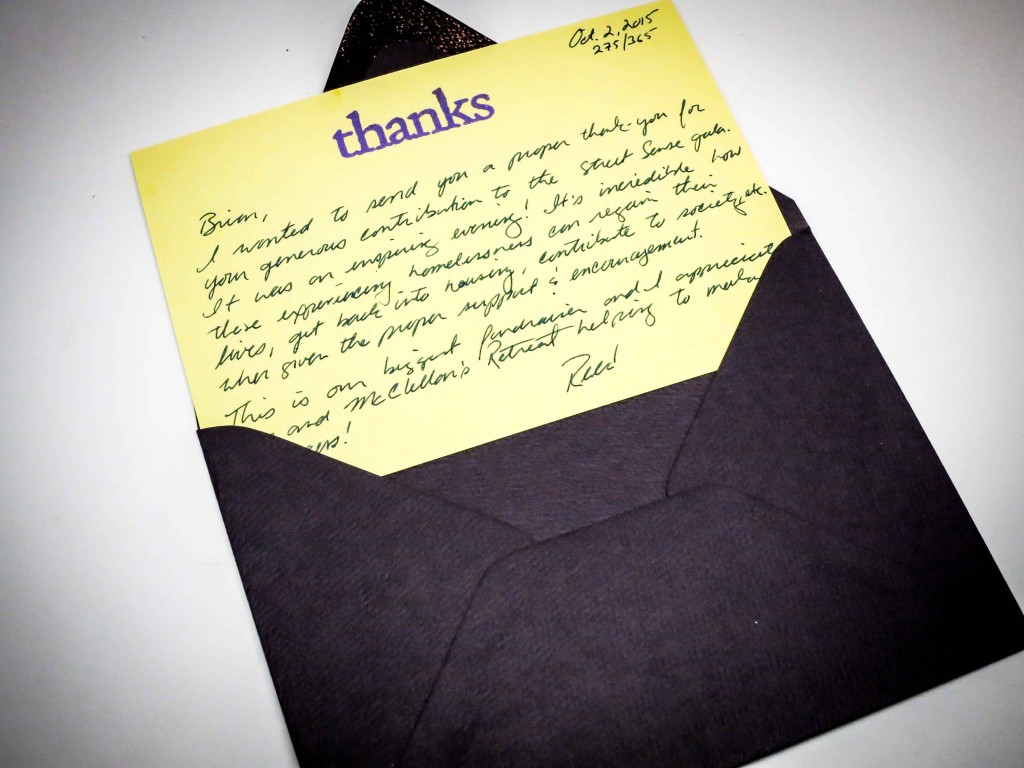 Oct. 2, 2015
275/365
thanks
Brian,
I wanted to send you a proper thank-you for
your generous contribution to the Street Sense gala.
It was an inspiring evening! It's incredible how
those experiencing homelessness can regain their
lives, get back into housing, contribute to society, etc.
when given the proper support & encouragement.
This is our biggest fundraiser and I appreciate
and McClellan's Retreat helping to make
Reed